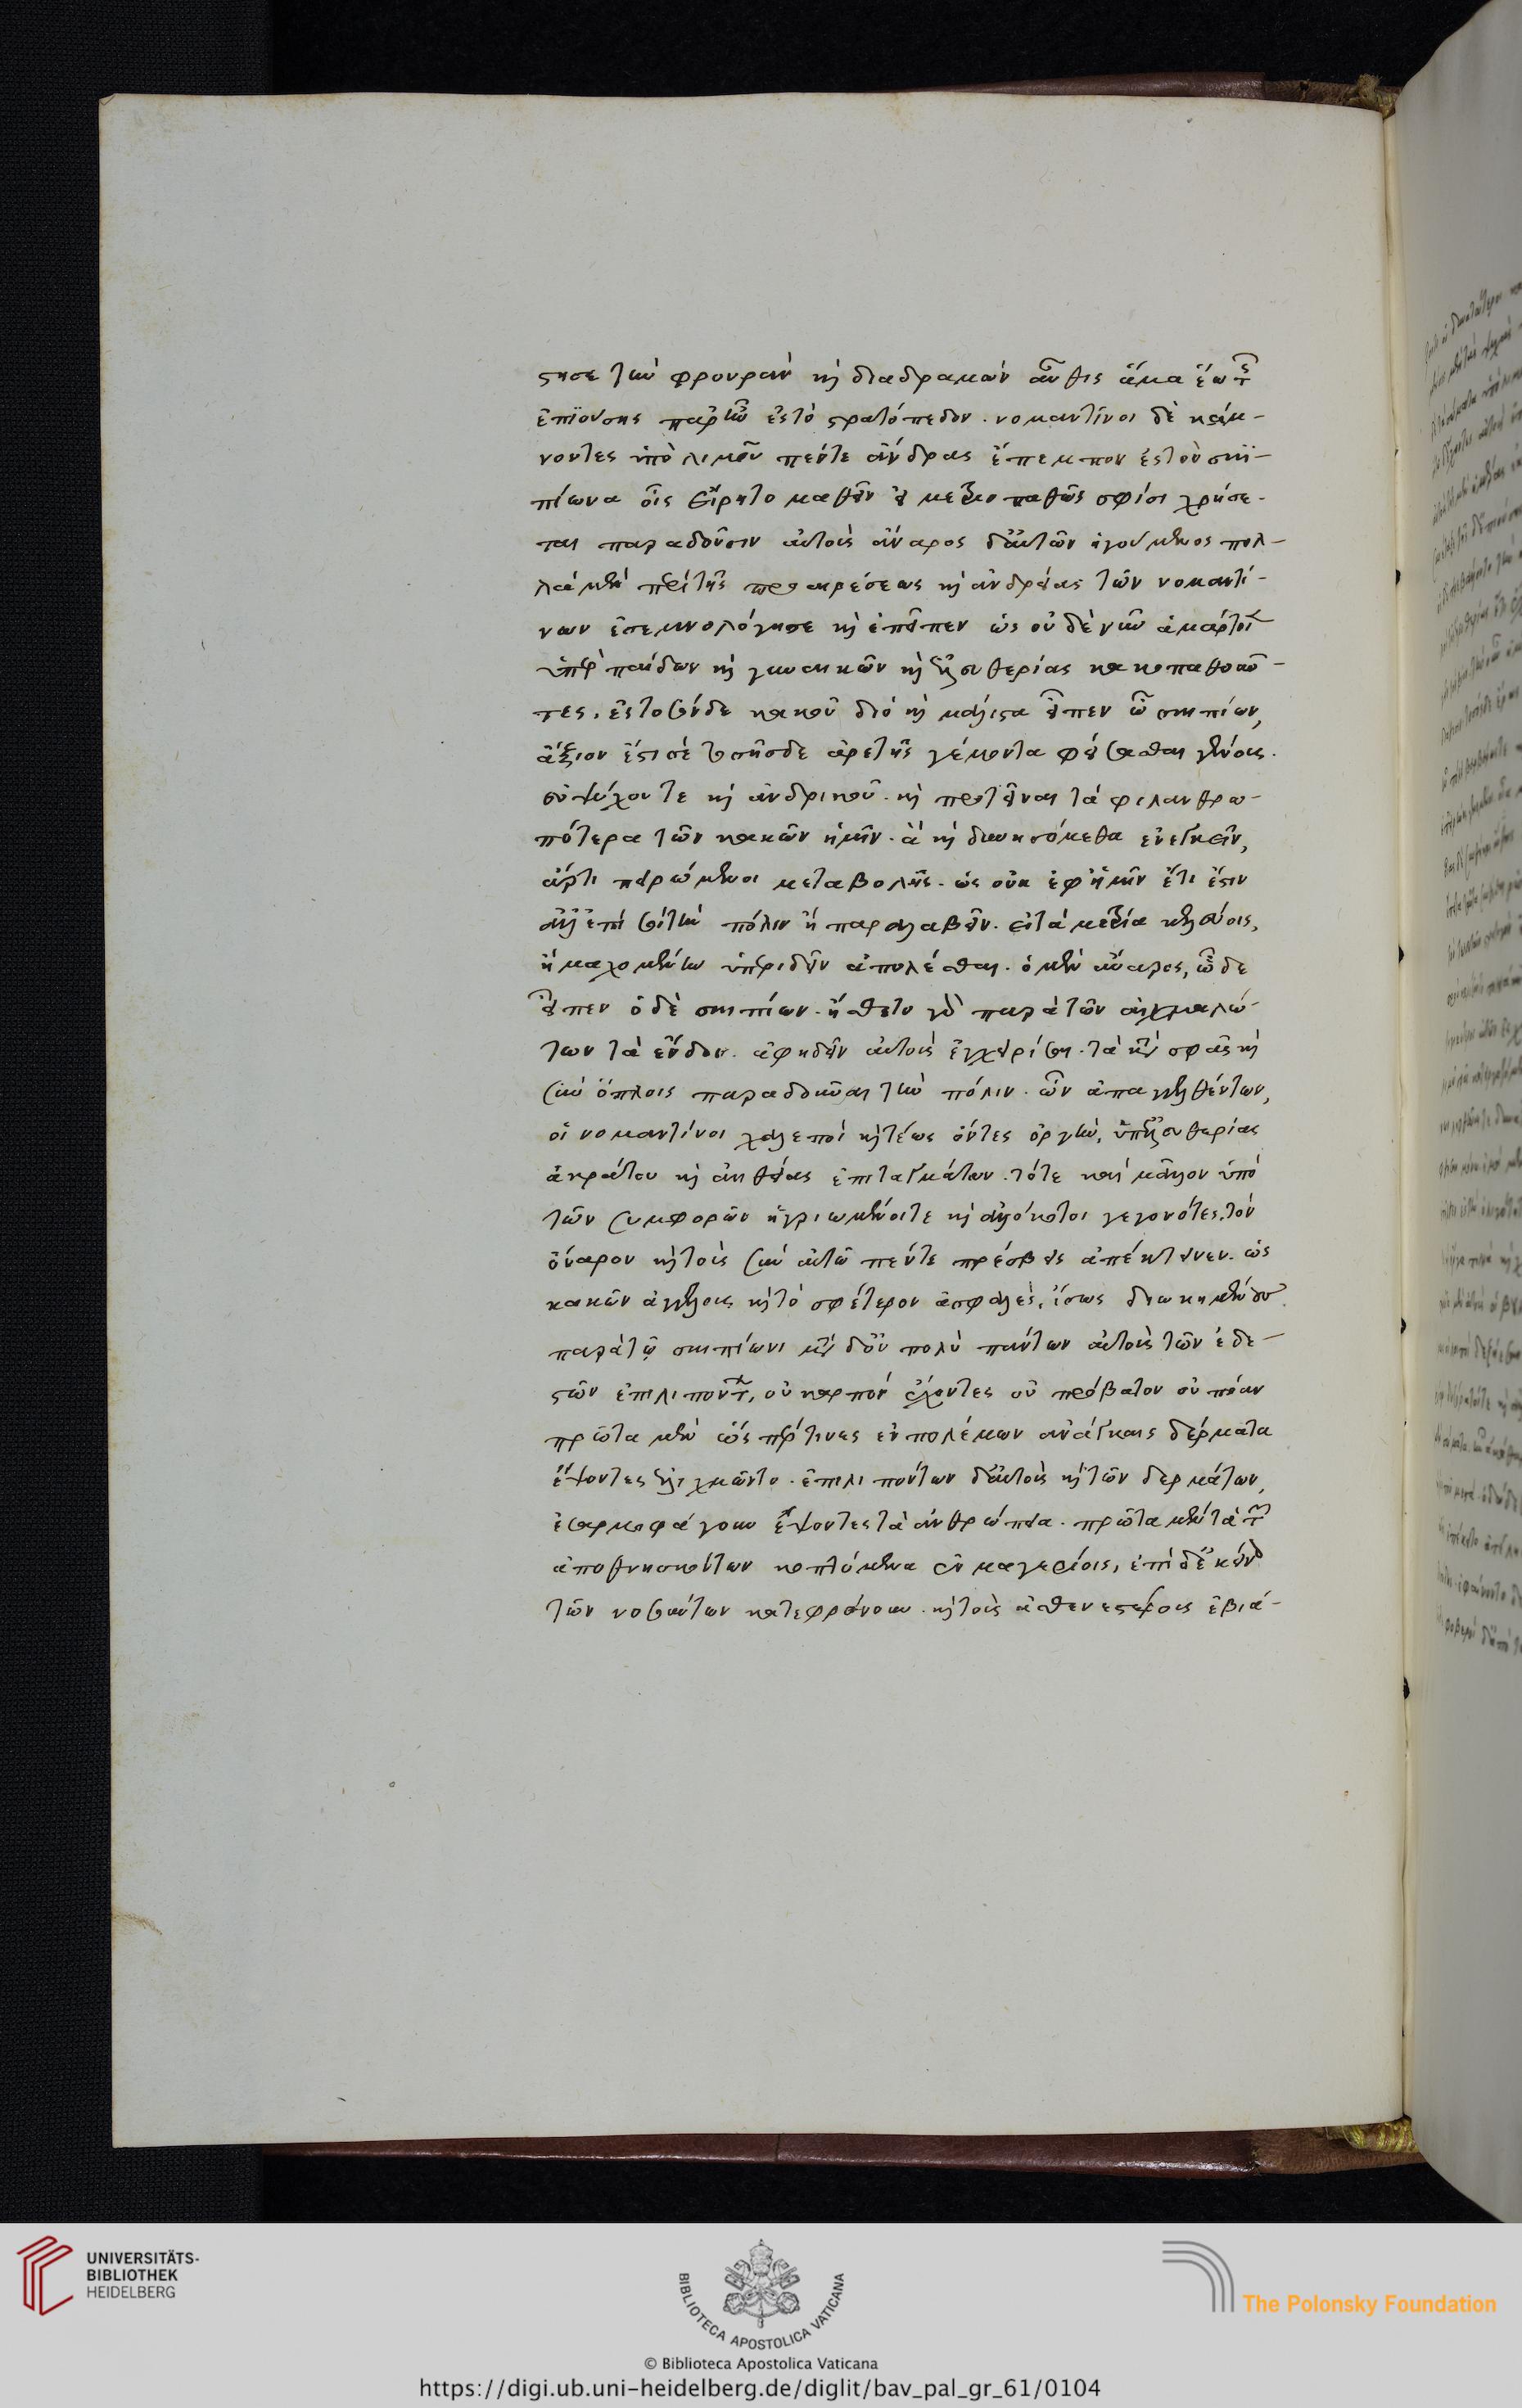 στησε τὴν φρουρὰν καὶ διαδραμὼν αὖθις ἅμα ἕω τῆς
ἐπϊούσης παρῆν ἐς τὸ στρατόπεδον. νομαντῖνοι δὲ κάμ-
νοντες ὑπὸ λιμοῦ πέντε ἄνδρας ἔπεμπον ἐς τὸν σκι-
πίωνα οἷς εἴρητο μαθεῖν εἰ μετριοπαθῶς σφίσι χρήσε-
ται παραδοῦσιν αὐτοὺς ἄναρος δ' αὐτῶν ἡγούμενος πολ-
λὰ μὲν περὶ τῆς προαιρέσεως καὶ ἀνδρείας τῶν νομαντί-
νων ἐσεμνολόγησε καὶ ἐπεῖπεν ὡς οὐδὲ νῦν ἁμάρτοιεν
ὑπὲρ παίδων καὶ γυναικῶν καὶ ἐλευθερίας κακοπαθοῦν-
τες. ἐς τοσόνδε κακοῦ διὸ καὶ μάλιστα εἶπεν ὦ σκιπίων,
ἄξιον ἔστι σὲ τοσῆσδε ἀρετῆς γέμοντα φείσασθαι γένους.
εὐψύχου τε καὶ ἀνδρικοῦ. καὶ προτεῖναι τὰ φιλανθρω-
πότερα τῶν κακῶν ἡμῖν. ἃ καὶ δυνησόμεθα ἐνεγκεῖν,
ἄρτι πειρώμενοι μεταβολῆς. ὡς οὐκ ἐφ' ἡμῖν ἔτι ἔστιν
ἀλλ' ἐπὶ σοὶ τὴν πόλιν ἢ παραλαβεῖν. εἰ τὰ μέτρια κελεύοις,
ἢ μαχομένην ὑπεριδεῖν ἀπολέσθαι. ὁ μὲν αὔαρος, ὧδε
εἶπεν ὁ δὲ σκιπίων. ἤσθετο γὰρ παρὰ τῶν αἰχμαλώ-
των τὰ ἔνδον. ἀφιδεῖν αὐτοὺς ἐγχειρίσαι. τὰ κατὰ σφᾶς καὶ
σὺν ὅπλοις παραδοῦναι τὴν πόλιν. ὧν ἀπαγγελθέντων,
οἱ νομαντίνοι χαλεποὶ καὶ τέως ὄντες ὀργὴν, ὑπ' ἐλευθερίας
ἀκράτου καὶ ἀηθείας ἐπιταγμάτων. τότε καὶ μᾶλλον ὑπὸ
τῶν συμφορῶν ἠγριωμένοι τε καὶ ἀλλόκοτοι γεγονότες. τὸν
ὄναρον καὶ τοὺς σὺν αὐτῷ πέντε πρέσβεις ἀπέκτεινεν. ὡς
κακῶν ἀγγέλους καὶ τὸ σφέτερον ἀσφαλὲς, ἴσως διωκημένους
παρὰ τῷ σκιπίωνι μετὰ δ' οὐ πολὺ πάντων αὐτοὺς τῶν ἐδε-
στῶν ἐπιλιπόντων, οὐ καρπὸν ἔχοντες οὐ πρόβατον οὐ πόαν
πρῶτα μὲν ὥσπερ τινες ἐν πολέμων ἀνάγκαις δέρματα
ἕψοντες ἐλιχμῶντο. ἐπιλιπόντων δ' αὐτοὺς καὶ τῶν δερμάτων,
ἐσαρκοφάγουν ἕψοντες τὰ ἀνθρώπεια. πρῶτα μὲν τὰ τῶν
ἀποθνησκόντων κοπτόμενα ἐν μαγειρίοις, ἐπὶ δ' ἐκείνων
τῶν νοσούντων κατεφρόνουν. καὶ τοὺς ἀσθενεστέρους ἐβιά-
UNIVERSITÄTS-
BIBLIOTHEK
HEIDELBERG
BIBLIOTECA APOSTOLICA VATICANA
The Polonsky Foundation
© Biblioteca Apostolica Vaticana
https://digi.ub.uni-heidelberg.de/diglit/bav_pal_gr_61/0104